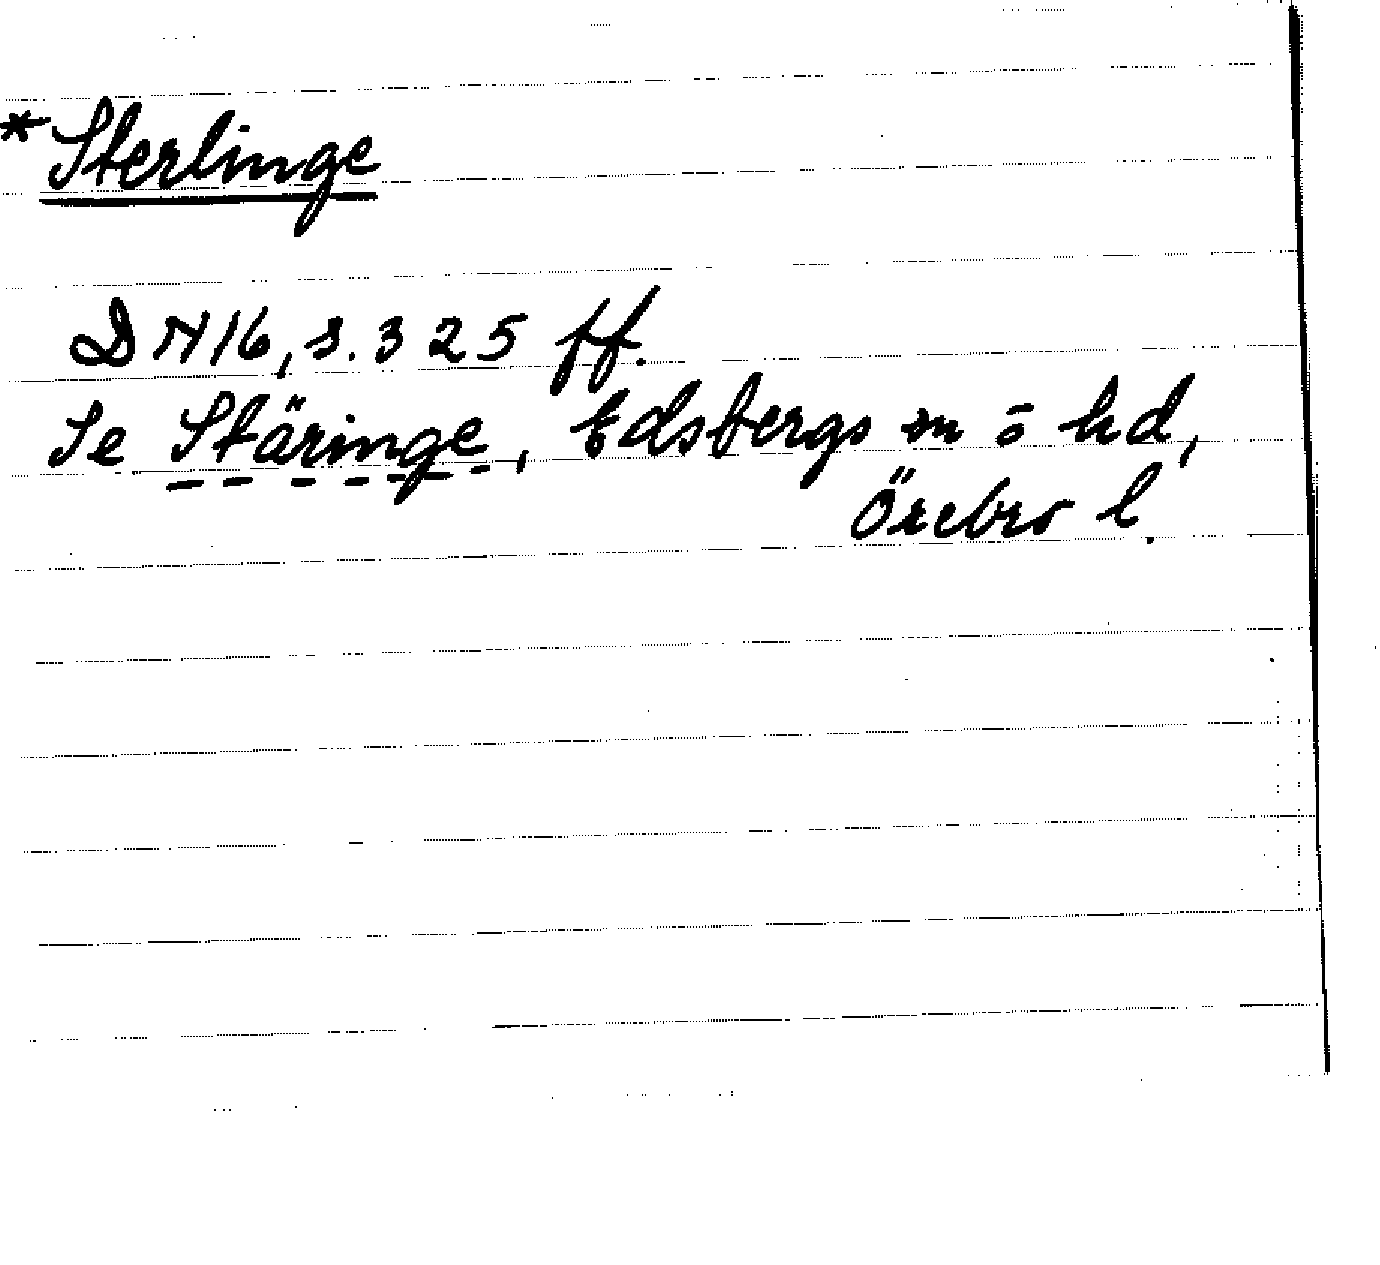 *Sterlinge
DN16, s. 325 ff.
Se Stäringe, Edsbergs sn o hd,
Örebro l.